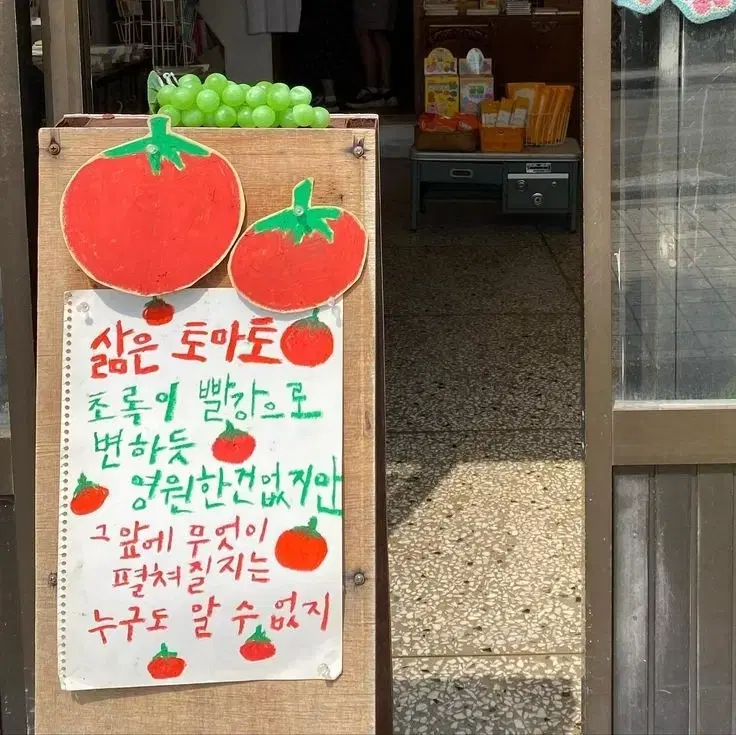 삶은 토마토
초록이 빨강으로
변하듯
영원한건없지만
그 앞에 무엇이
펼쳐질지는
누구도 알 수 없지